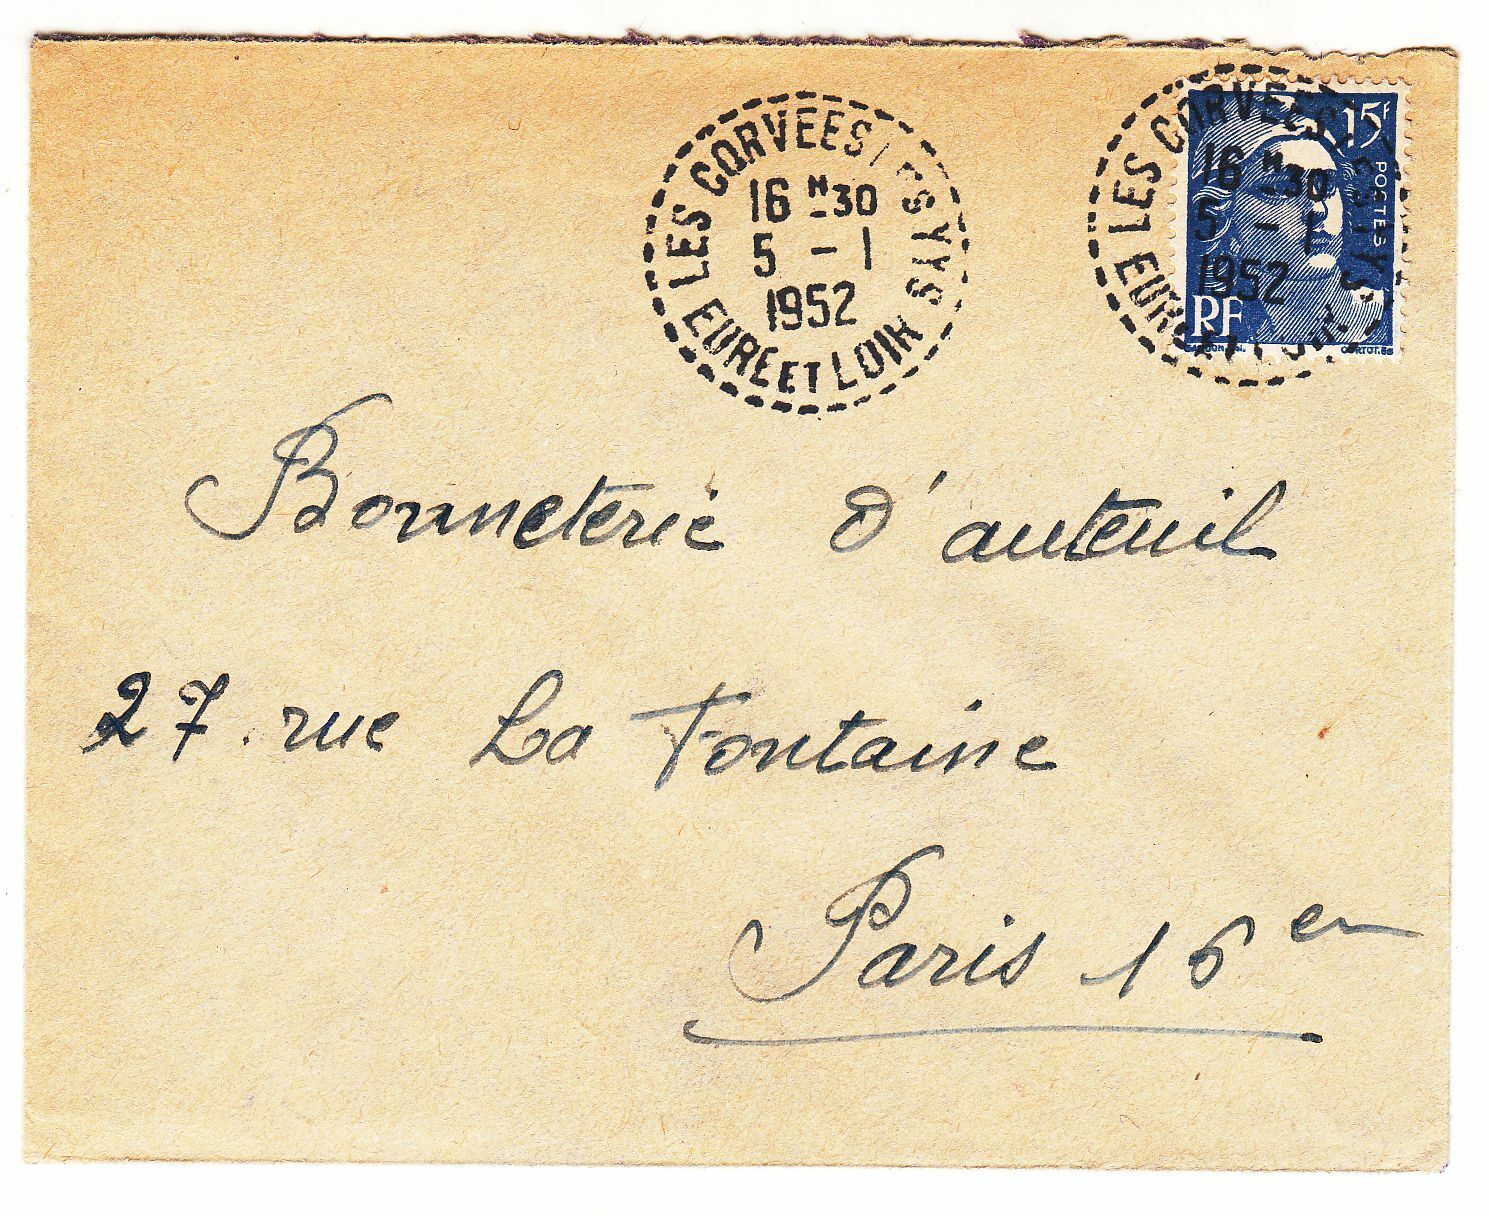 LES CORVEES LES YYS
16 H -30
5 - 1
1952
EURE ET LOIR
LES CORVEES LES YYS
16 H -30
5 - 1
1952
EURE ET LOIR
15f
POSTES
RF
GANDON DEL.
CORTOT.SC
Bonneterie d'auteuil
27. rue La Fontaine
Paris 16em